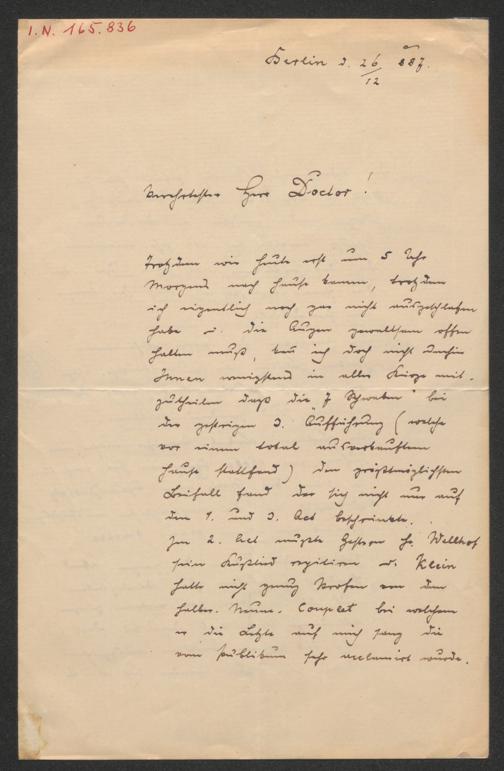 I.N. 165.836
Berlin d. 26/12 887.
Verehrtester Herr Doctor!
Trotzdem wir heute erst um 5 Uhr
Morgens nach Hause kamen, trotzdem
ich eigentlich noch gar nicht ausgeschlafen
habe u. die Augen gewaltsam offen
halten muß, kan ich doch nicht umhin
Ihnen wenigstens in aller Kürze mit-
zutheilen daß die "7 Schwaben" bei
der gestrigen 3. Aufführung (welche
vor einem total ausverkauftem
Hause stattfand) den größtmöglichsten
Beifall fand der sich nicht nur auf
den 1. und 3. Act beschränkte.
Im 2. Act mußte Gestern Hr. Wellhof
sein Kußlied repetiren u. Klein
hatte nicht genug Strofen von dem
Couplet bei welchem
er die Letzte auf mich sang die
vom Publikum sehr acclamirt wurde.